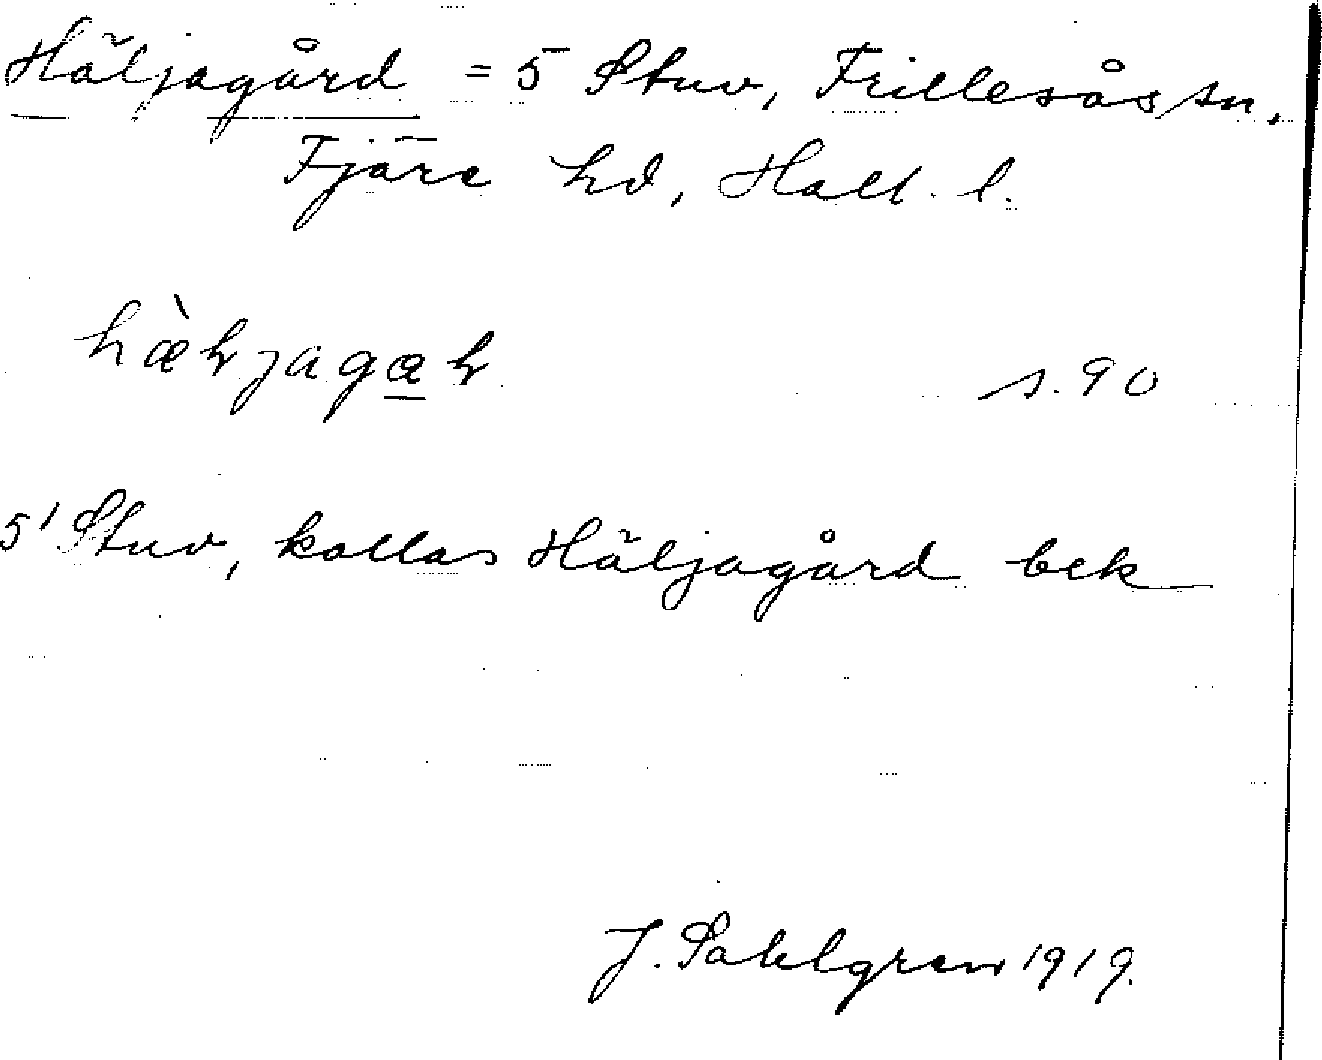 Häljagård = 5 Stuv, Frillesås sn,
Fjäre hd, Hall. l.
s. 90
5' Stuv, kallas Häljagård bek
J. Sahlgren 1919.